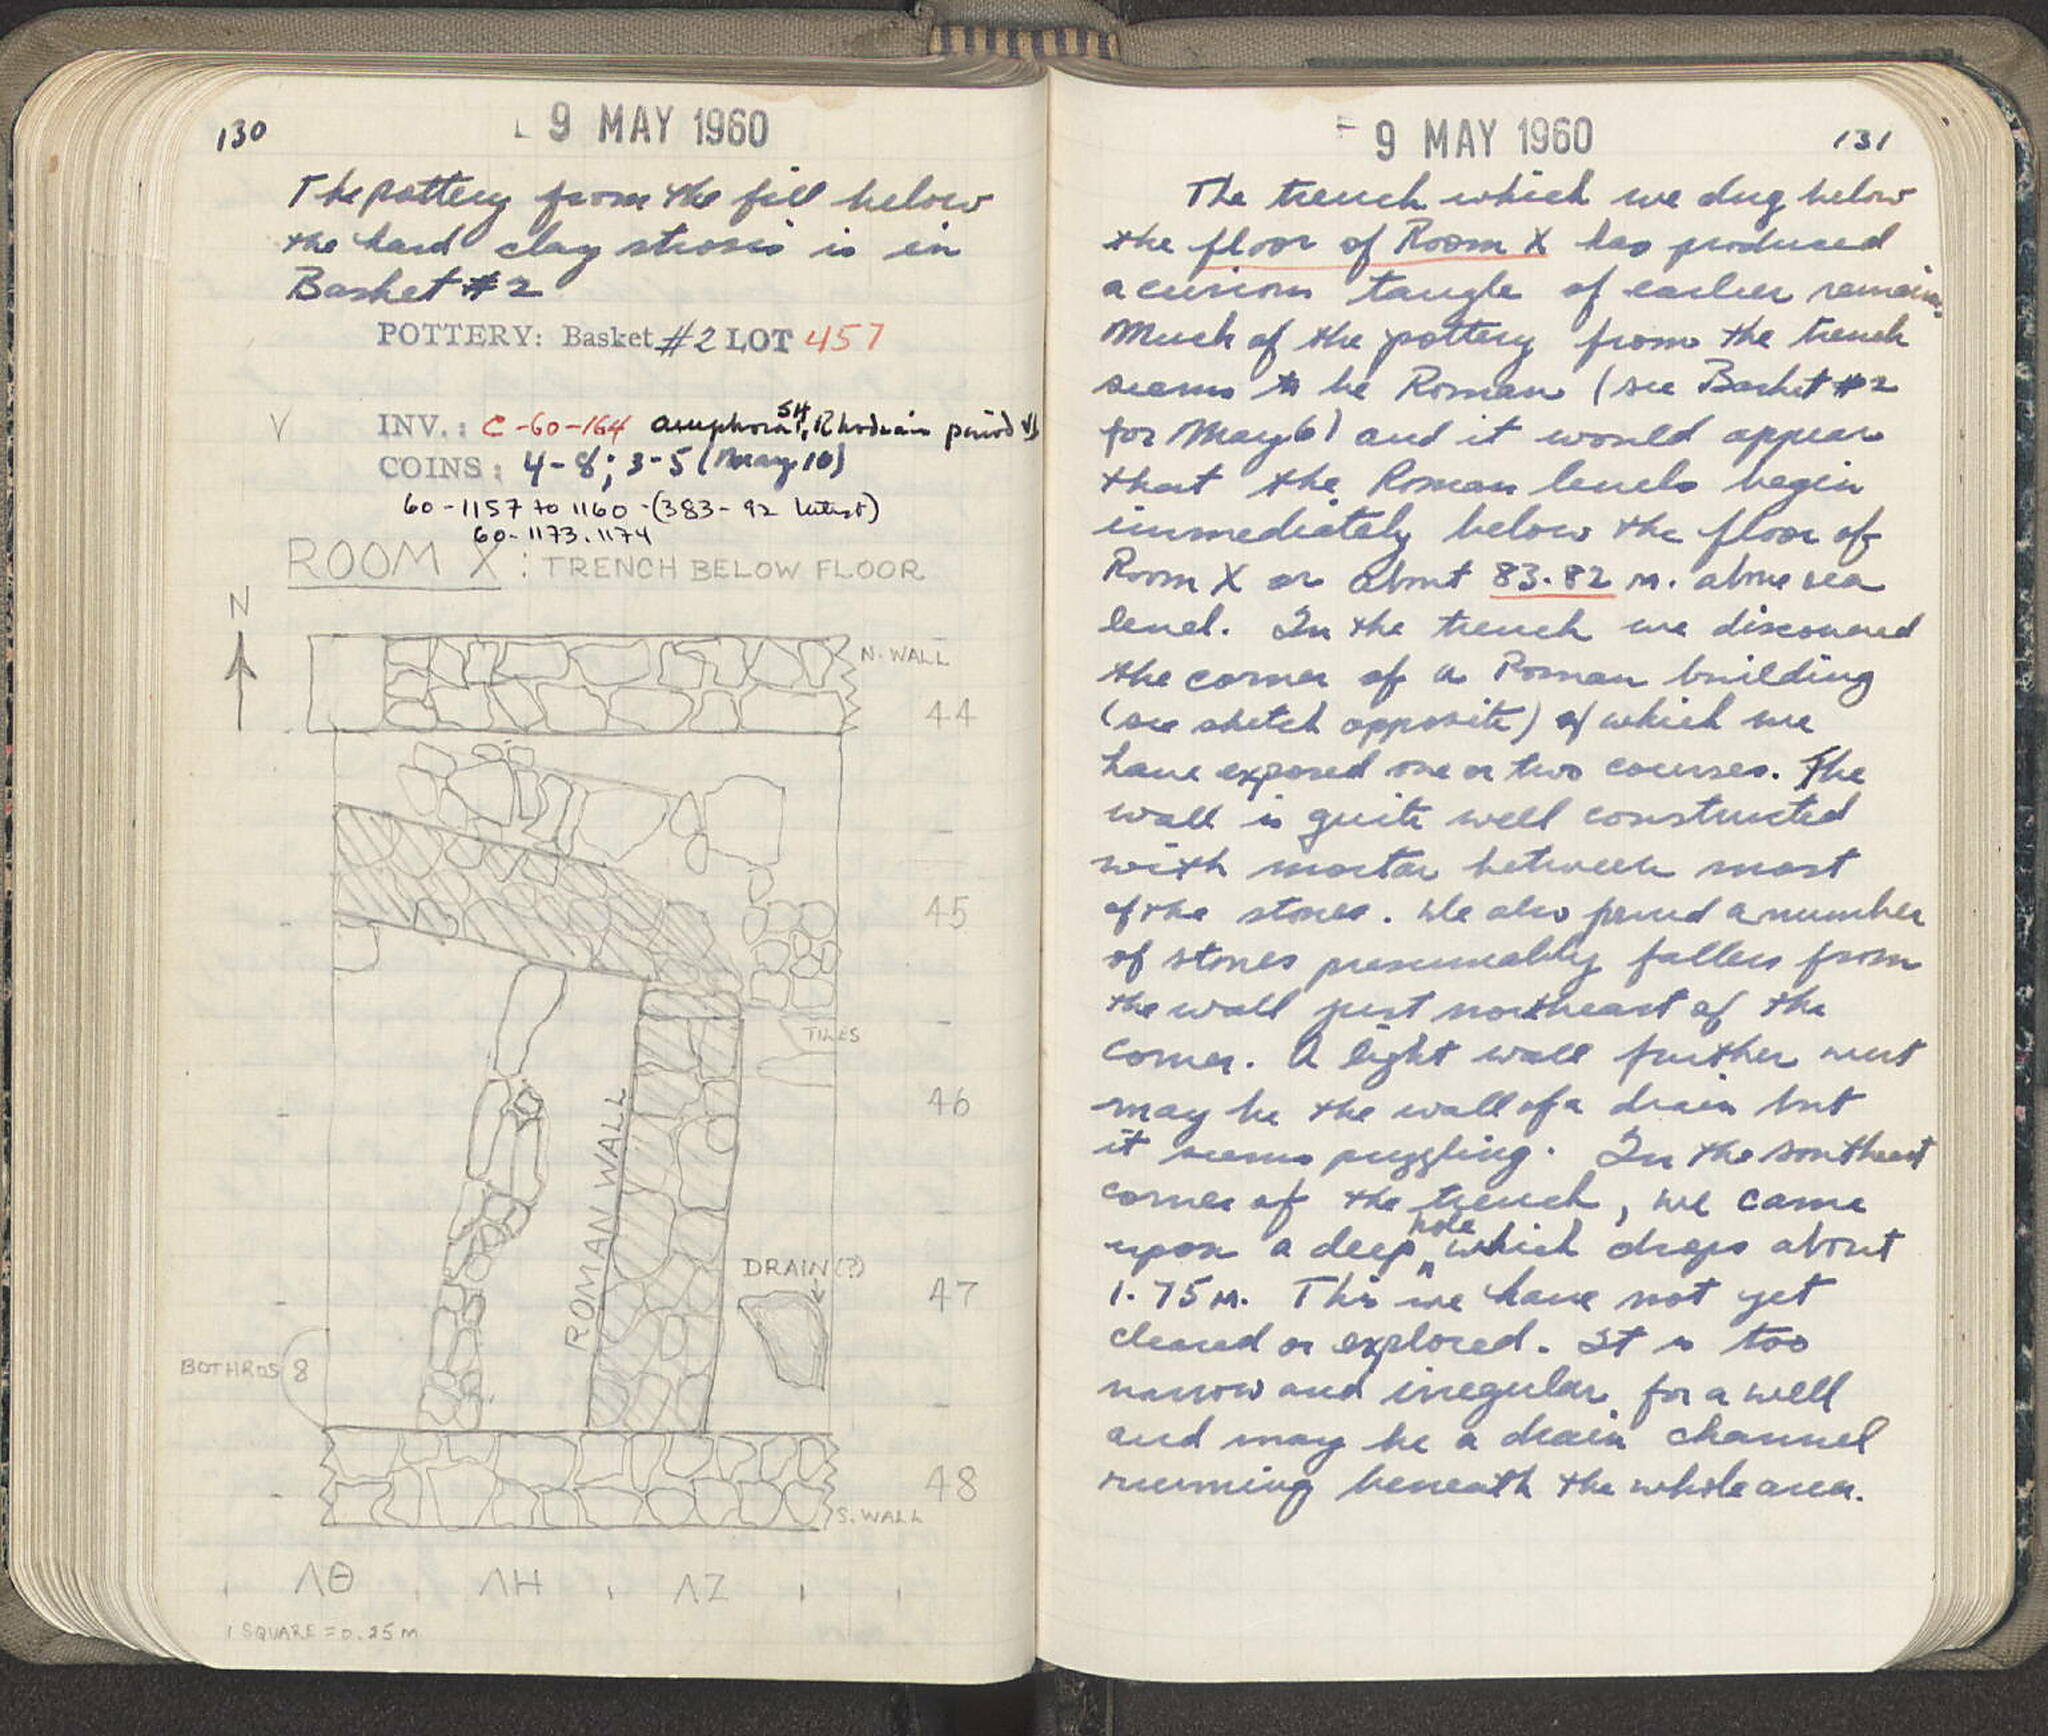 130
9 MAY 1960
The pottery from the fill below
the hard clay strosis is in
Basket #2
POTTERY: Basket #2 LOT 457
V
INV.: C-60-164 amphora SH, Rhodian period
COINS: 4-8; 3-5 (May 10)
60-1157 to 1160 - (383-92 latest)
60-1173, 1174
ROOM X: TRENCH BELOW FLOOR
N
N. WALL
44
45
TILES
46
ROMAN WALL
DRAIN (?)
47
BOTHROS 8
48
S. WALL
ΛΘ ΛΗ ΛΖ
1 SQUARE = 0.25 M.
9 MAY 1960
131
The trench which we dug below
the floor of Room X has produced
a curious tangle of earlier remains.
Much of the pottery from the trench
seems to be Roman (see Basket #2
for May 6) and it would appear
that the Roman levels begin
immediately below the floor of
Room X or about 83.82 m. above sea
level. In the trench we discovered
the corner of a Roman building
(see sketch opposite) of which we
have exposed one or two courses. The
wall is quite well constructed
with mortar between most
of the stones. We also found a number
of stones presumably fallen from
the wall just northeast of the
corner. A light wall further west
may be the wall of a drain but
it seems puzzling. In the southeast
corner of the trench, we came
upon a deep hole which drops about
1.75 m. This we have not yet
cleared or explored. It is too
narrow and irregular for a well
and may be a drain channel
running beneath the whole area.